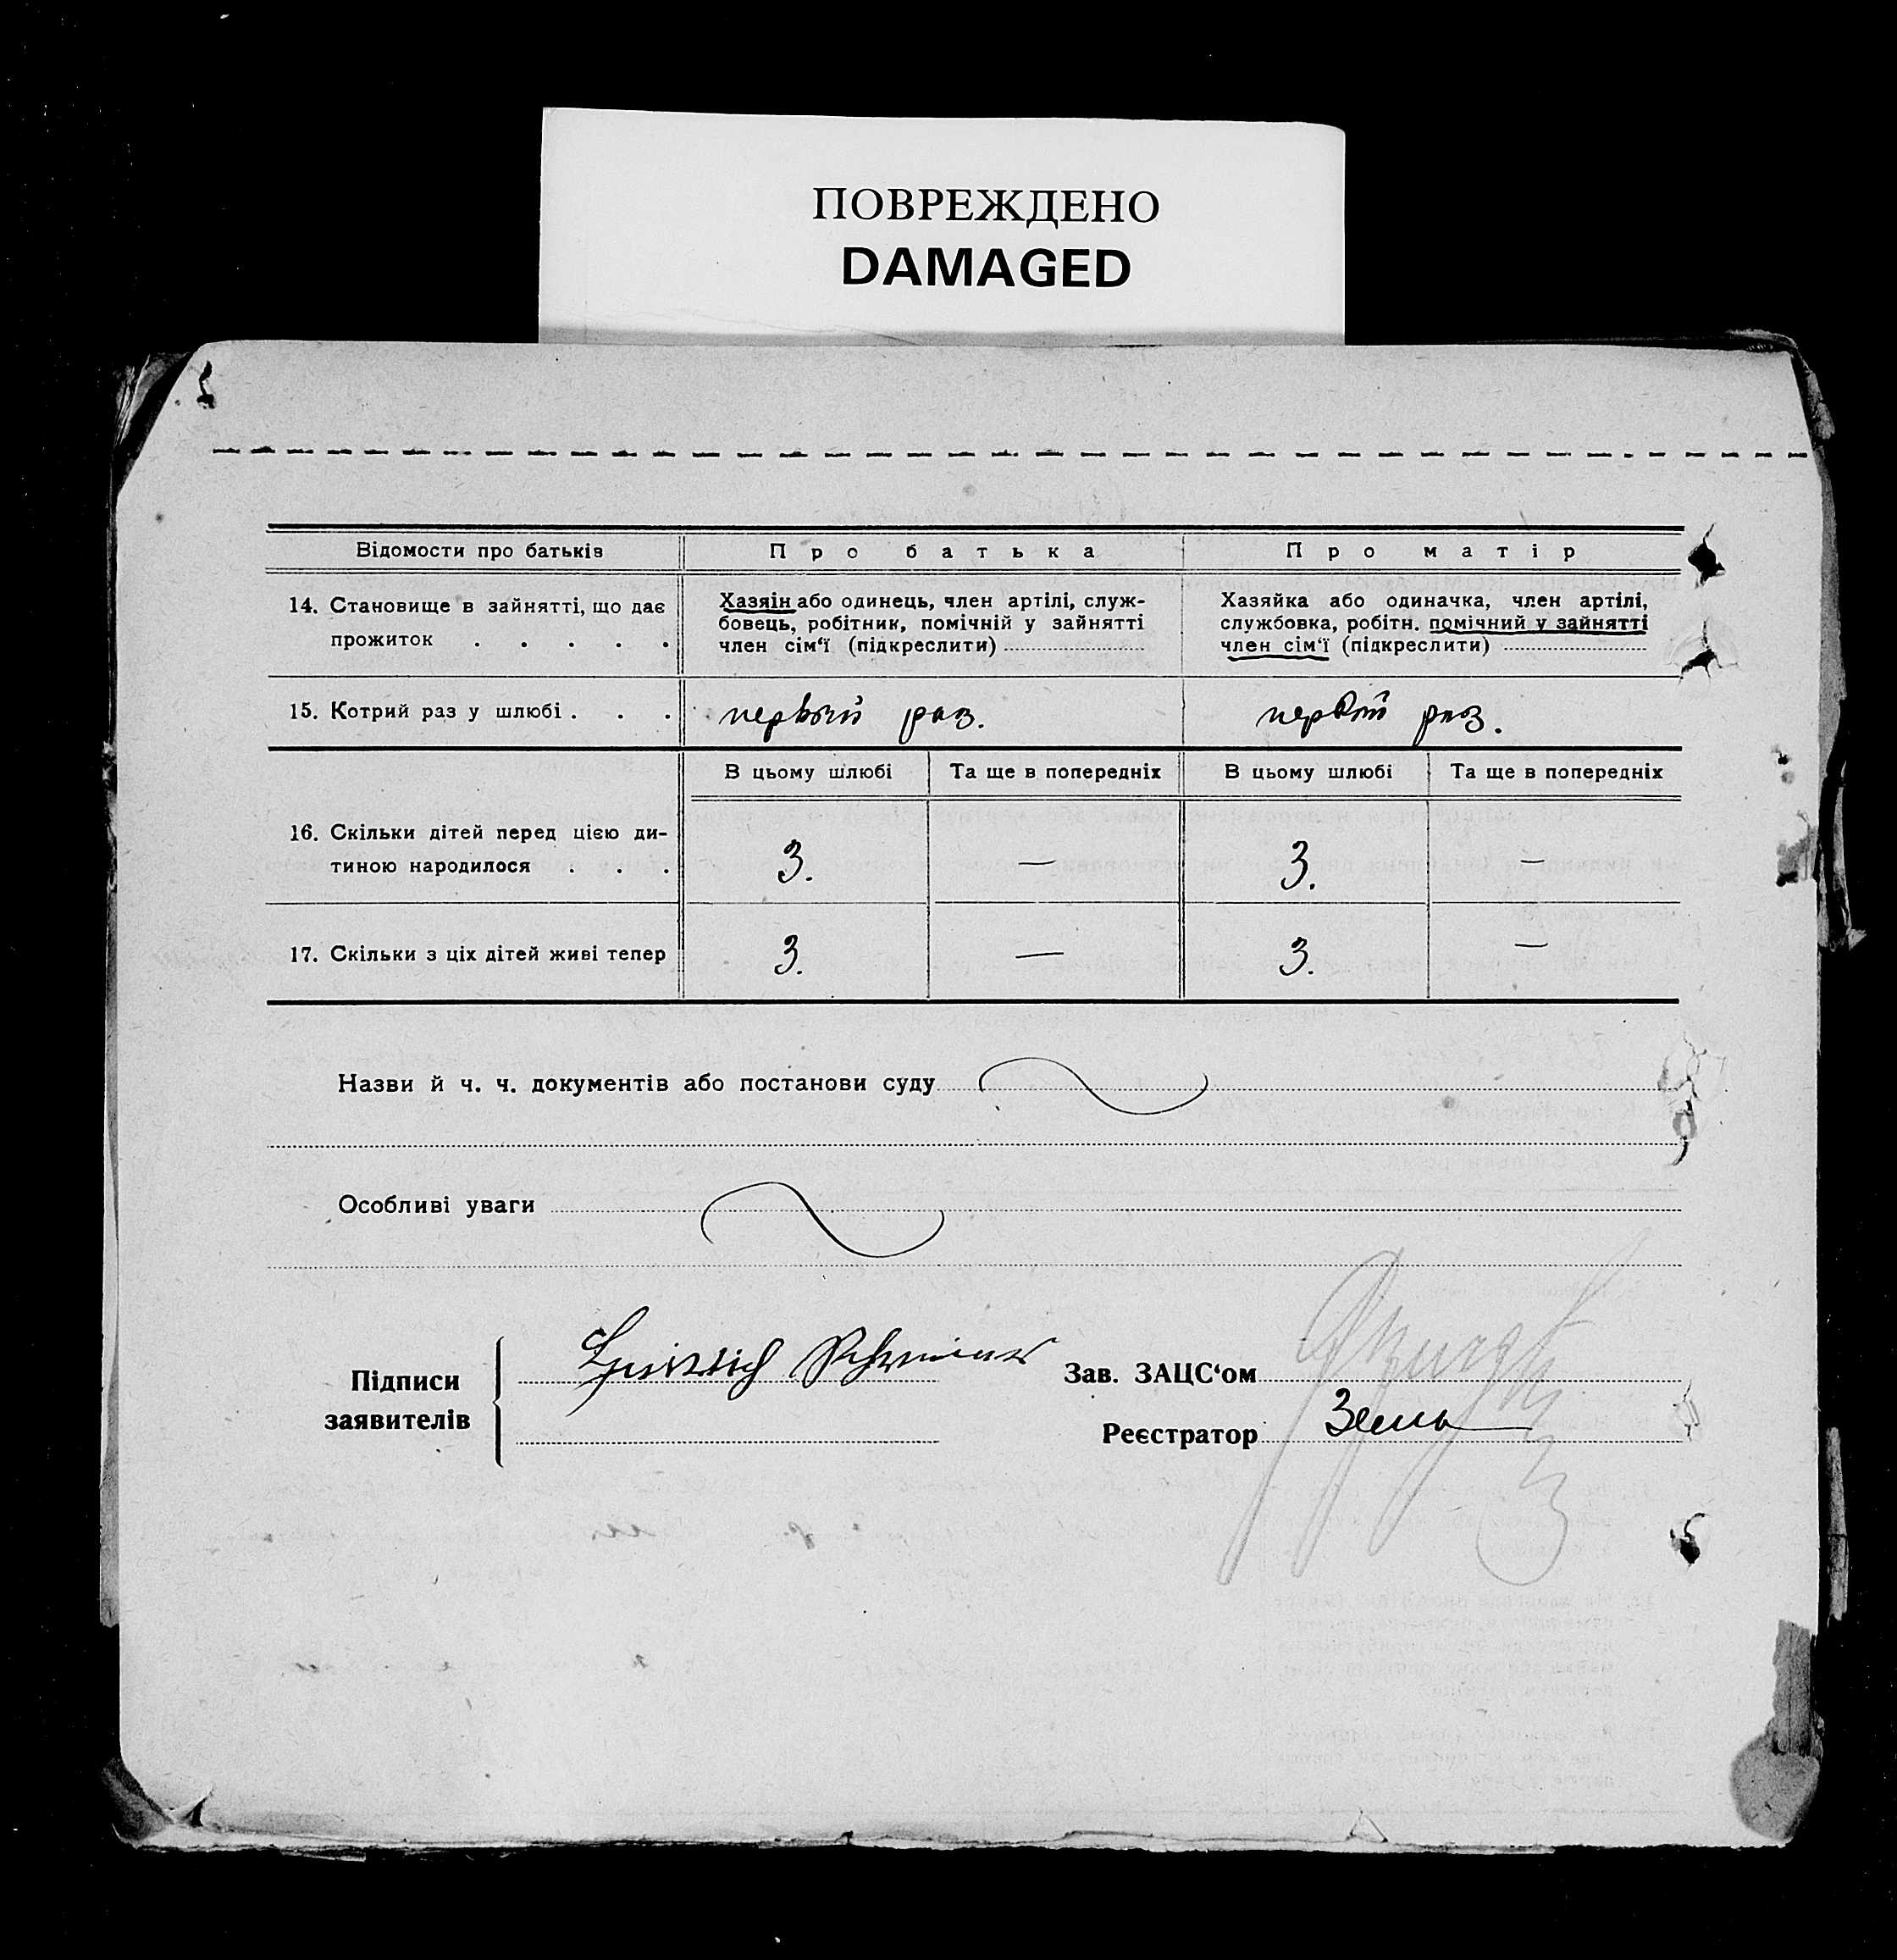 ПОВРЕЖДЕНО
DAMAGED
Відомости про батьків
Про батька
Про матір
14. Становище в зайнятті, що дає
прожиток . . . . .
Хазяін або одинець, член артілі, служ-
бовець, робітник, помічній у зайнятті
член сім‘ї (підкреслити)
Хазяйка або одиначка, член артілі,
службовка, робітн. помічний у зайнятті
член сім‘ї (підкреслити)
15. Котрий раз у шлюбі . . .
первый раз.
первый раз.
В цьому шлюбі
Та ще в попередніх
В цьому шлюбі
Та ще в попередніх
16. Скільки дітей перед цією ди-
тиною народилося . . .
3.
—
3.
—
17. Скільки з ціх дітей живі тепер
3.
—
3.
—
Назви й ч. ч. документів або постанови суду
Особливі уваги
Підписи
заявителів
Heinrich
Зав. ЗАЦС‘ом
Реєстратор